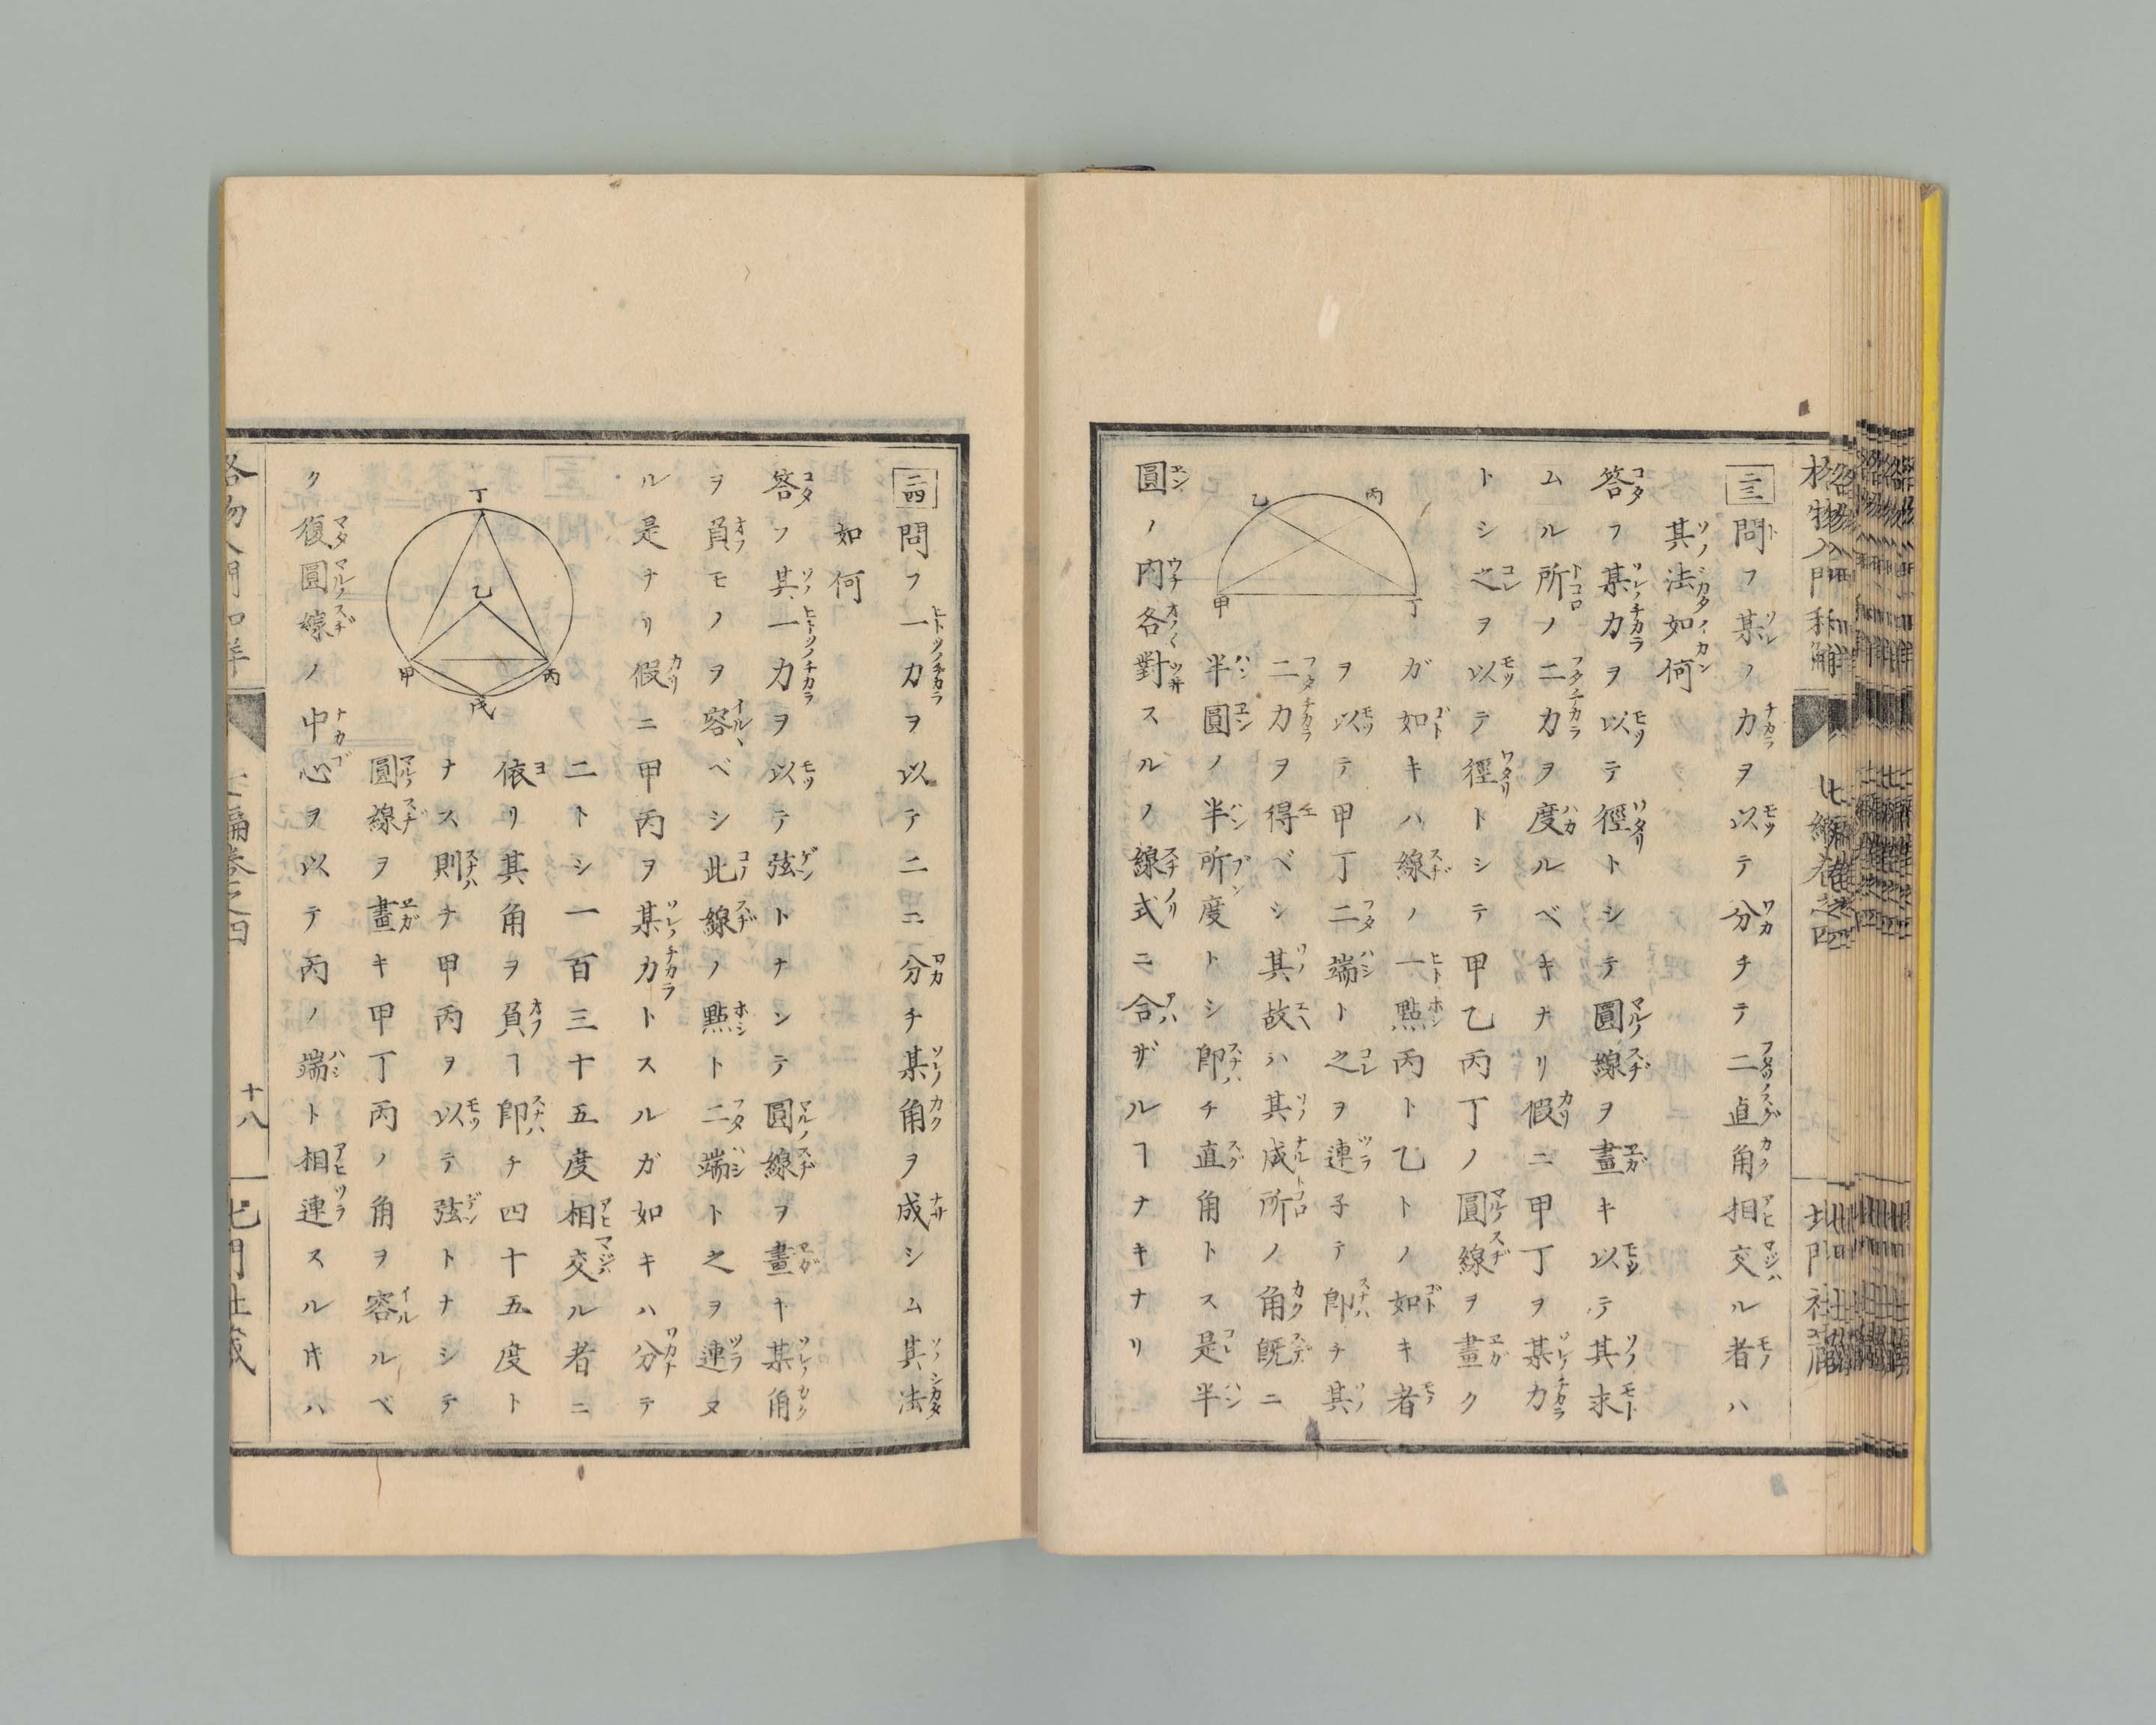 二三問フ某ノ力ヲ以テ分チテ二直角相交ル者ハ
其法如何
答フ某力ヲ以テ徑トシテ圓線ヲ畫キ以テ其求
ムル所ノ二力ヲ度ルベキナリ假ニ甲丁ヲ某力
トシ之ヲ以テ徑トシテ甲乙丙丁ノ圓線ヲ畫ク
ガ如キハ線ノ一點丙ト乙トノ如キ者
ヲ以テ甲丁二端ト之ヲ連子テ即チ其
二力ヲ得ベシ其故ハ其成所ノ角既ニ
半圓ノ半所度トシ即チ直角トス是半
圓ノ内各對スルノ線式ニ合ザルヿナキナリ
乙
丙
甲
丁
二四問フ一力ヲ以テ二ニ分チ某角ヲ成シム其法
如何
答フ其一力ヲ以テ弦トナシテ圓線ヲ畫キ某角
ヲ負モノヲ容ベシ此線ノ點ト二端ト之ヲ連ヌ
ル是ナリ假ニ甲丙ヲ某力トスルガ如キハ分テ
二トシ一百三十五度相交ル者ニ
依リ其角ヲ負ヿ即チ四十五度ト
ナス則チ甲丙ヲ以テ弦トナシテ
圓線ヲ畫キ甲丁丙ノ角ヲ容ルベ
ク復圓線ノ中心ヲ以テ丙ノ端ト相連スルキハ
丁
乙
甲
丙
戊
十八